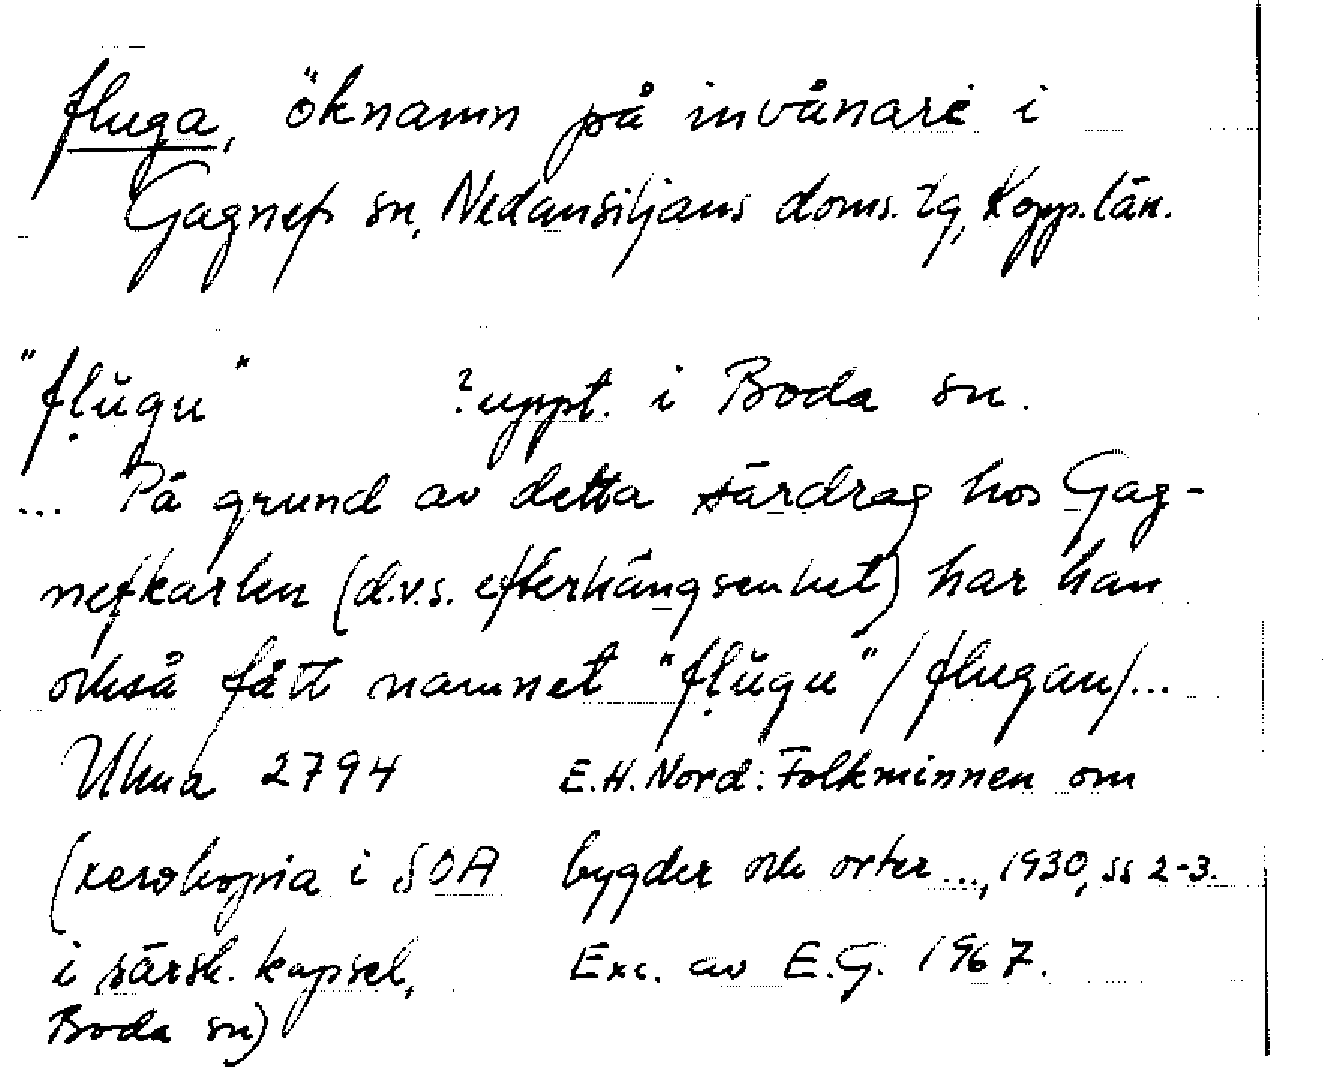 fluga, öknamn på invånare i
Gagnefs sn, Nedansiljans doms. tg, Kopp. län.
"fḷŭgu" ? uppt. i Boda sn.
... På grund av detta särdrag hos Gag-
nefkarlen (d.v.s. efterhängsenhet) har han
också fått namnet "fḷŭgu" / flugan / ...
Ulma 2794 E.H. Nord: Folkminnen om
(xerokopia i SOA bygder och orter ..., 1930, ss 2-3.
i särsk. kapsel, Exc. av E.G. 1967.
Boda sn)